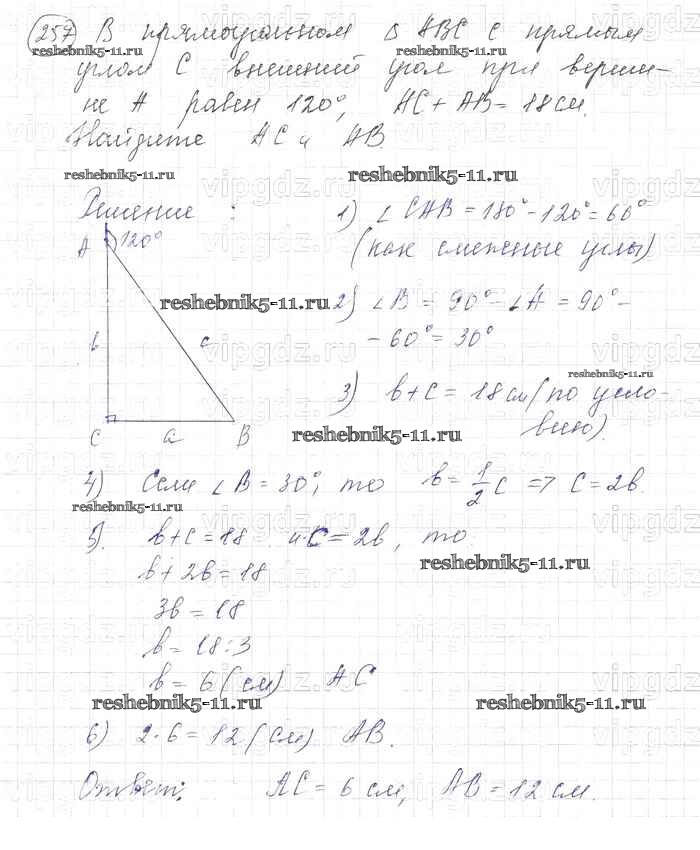 257 В прямоугольном Δ ABC с прямым
reshebnik5-11.ru reshebnik5-11.ru
углом C внешний угол при верши-
не A равен 120°, AC + AB = 18 см.
Найдите AC и AB.
reshebnik5-11.ru reshebnik5-11.ru
Решение :
1) ∠CAB = 180° - 120° = 60°
A 120°
(как смежные углы)
reshebnik5-11.ru
2) ∠B = 90° - ∠A = 90° -
- 60° = 30°
b c
reshebnik5-11.ru
3) b + c = 18 см (по усло-
вию).
C a B
reshebnik5-11.ru
4) Если ∠B = 30°, то b = 1/2 c => c = 2b.
reshebnik5-11.ru
5). b + c = 18 и c = 2b, то
reshebnik5-11.ru
b + 2b = 18
3b = 18
b = 18 : 3
b = 6 (см) AC
reshebnik5-11.ru reshebnik5-11.ru
6) 2 · 6 = 12 (см) AB.
Ответ: AC = 6 см, AB = 12 см.
vipgdz.ru